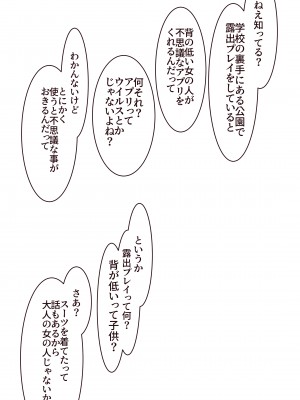 ねえ知ってる?
学校の裏手にある公園で
露出プレイをしていると
背の低い女の人が
不思議なアプリを
くれるんだって
何それ?
アプリって
ウイルスとか
じゃないよね?
わかんないけど
とにかく
使うと不思議な事が
おきるんだって
というか
露出プレイって何?
背が低いって子供?
さあ?
スーツを着てたって
話もあるから
大人の女の人じゃないか